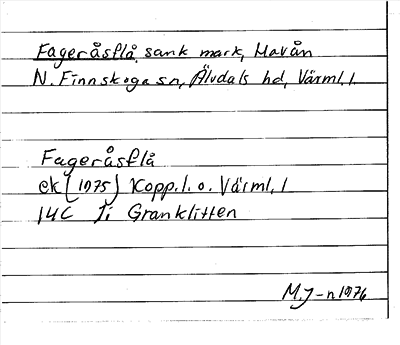 Fageråsflå, sank mark, Havån
N. Finnskoga sn, Älvdals hd, Värml. l.
Fageråsflå
ek (1975) Kopp. l. o. Värml. l
14C Ji Granklitten
M.J-n 1976